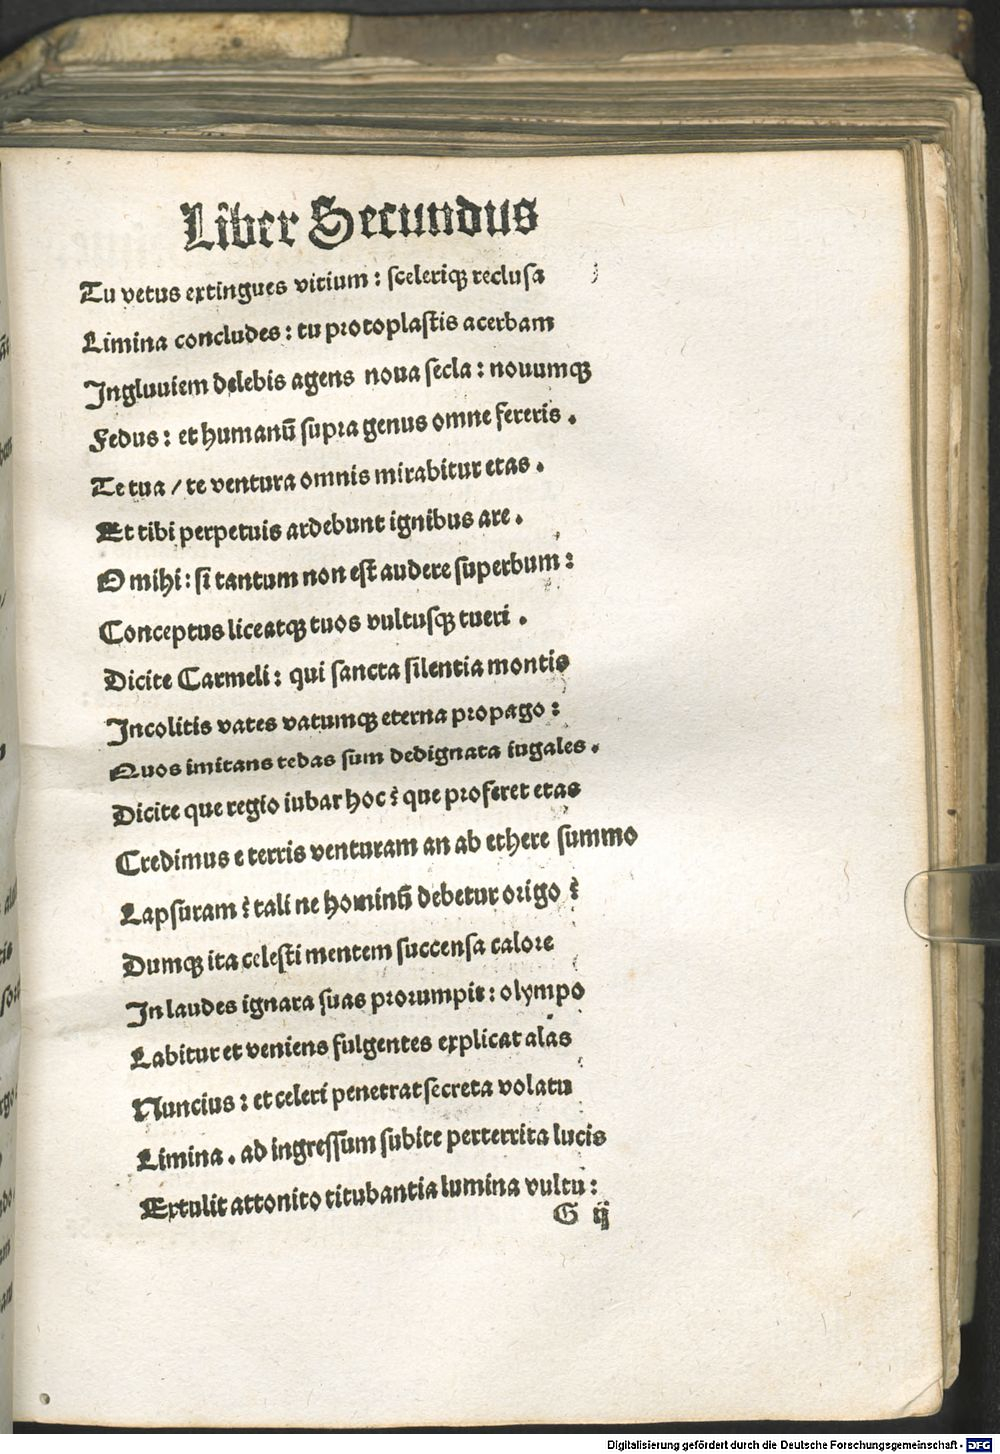 Liber Secundus
Tu vetus extingues vitium : sceleriqꝫ reclusa
Limina concludes : tu protoplastis acerbam
Ingluuiem delebis agens noua secla : nouumqꝫ
Fedus : et humanū supra genus omne fereris .
Te tua / te ventura omnis mirabitur etas .
Et tibi perpetuis ardebunt ignibus are .
O mihi : si tantum non est audere superbum :
Conceptus liceatqꝫ tuos vultusqꝫ tueri .
Dicite Carmeli : qui sancta silentia montis
Incolitis vates vatumqꝫ eterna propago :
Quos imitans tedas sum dedignata iugales .
Dicite que regio iubar hoc ? que proferet etas
Credimus e terris venturam an ab ethere summo
Lapsuram ? tali ne hominū debetur origo ?
Dumqꝫ ita celesti mentem succensa calore
In laudes ignara suas prorumpit : olympo
Labitur et veniens fulgentes explicat alas
Nuncius : et celeri penetrat secreta volatu
Limina . ad ingressum subite perterrita lucis
Extulit attonito titubantia lumina vultu :
G ij
Digitalisierung gefördert durch die Deutsche Forschungsgemeinschaft - DFG